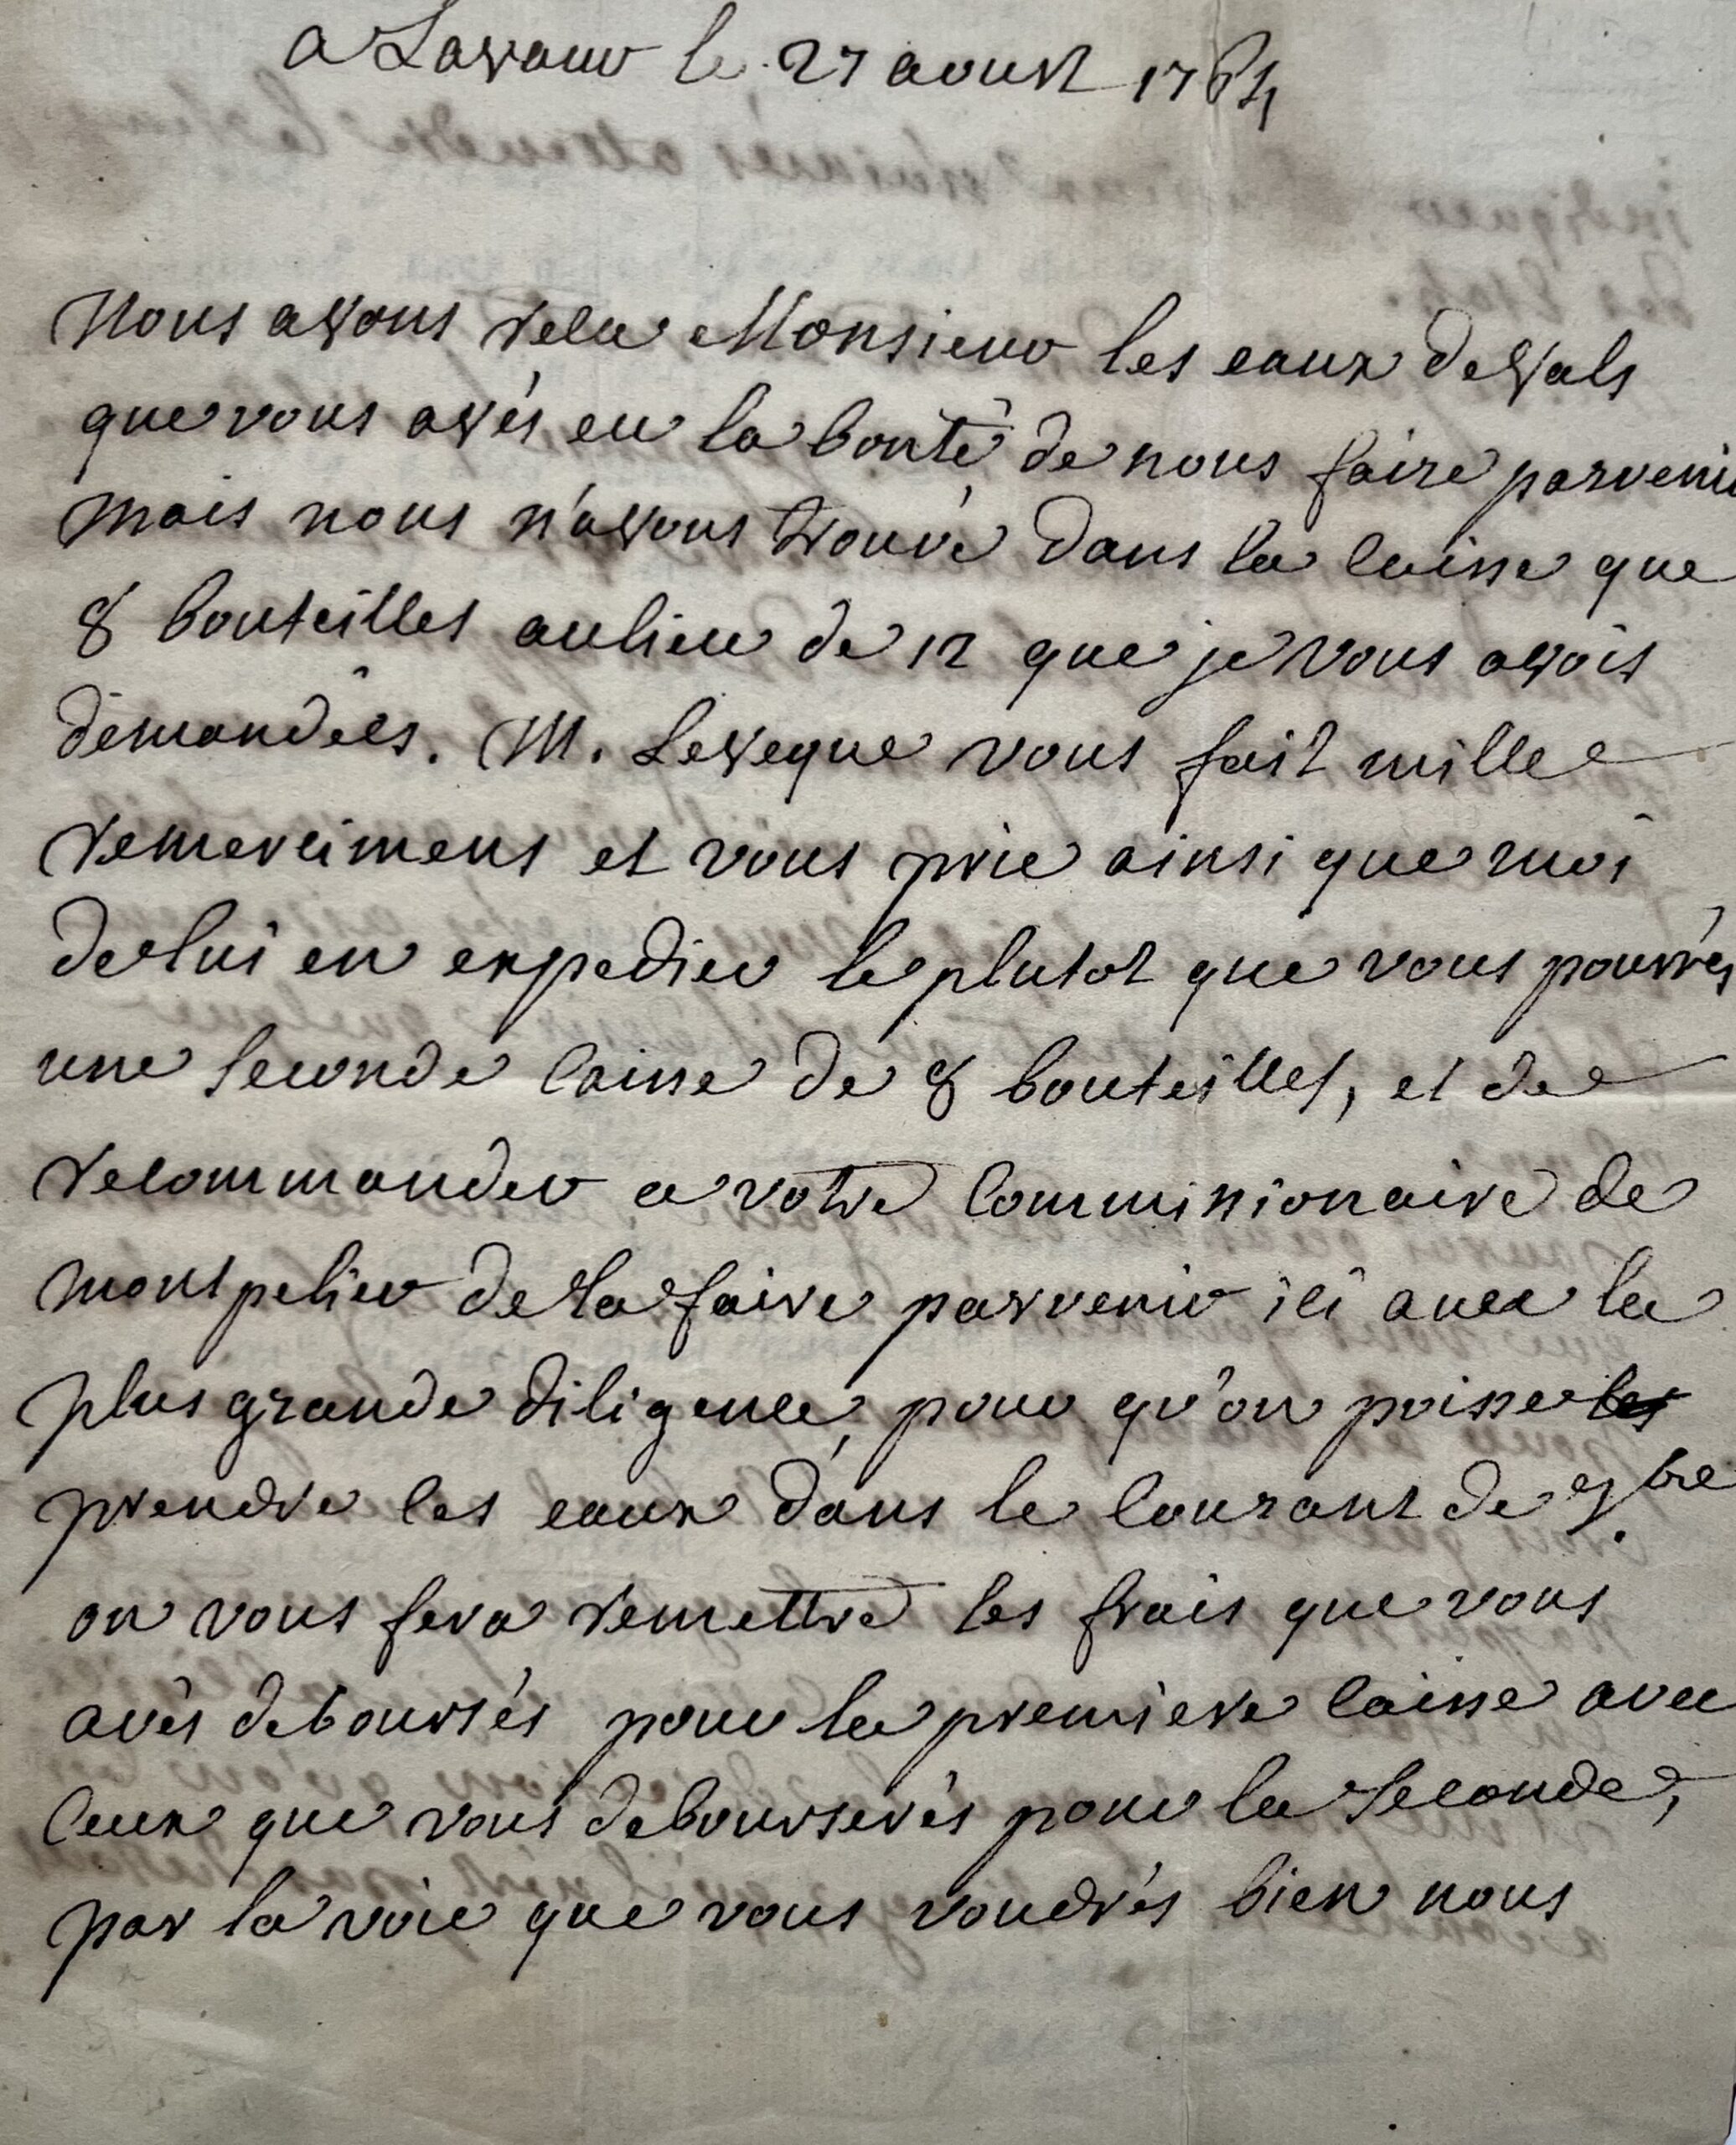 a Lavaur le 27 aoust 1764
Nous avons recu Monsieur les eaux de Vals
que vous avés eu la bonté de nous faire parvenir
mais nous n'avons trouvé dans la caisse que
8 bouteilles aulieu de 12 que je vous avois
demandées. M. Leveque vous fait mille
remercimens et vous prie ainsi que moi
de lui en expedier le plutot que vous pourrés
une seconde caisse de 8 bouteilles, et de
recommander a votre commissionaire de
montpelier de la faire parvenir ici avec la
plus grande diligence, pour qu'on puisse les
prendre les eaux dans le courant de 7.bre
on vous fera remettre les frais que vous
avés deboursés pour la premiere caisse avec
ceux que vous debourserés pour la seconde,
par la voie que vous voudrés bien nous